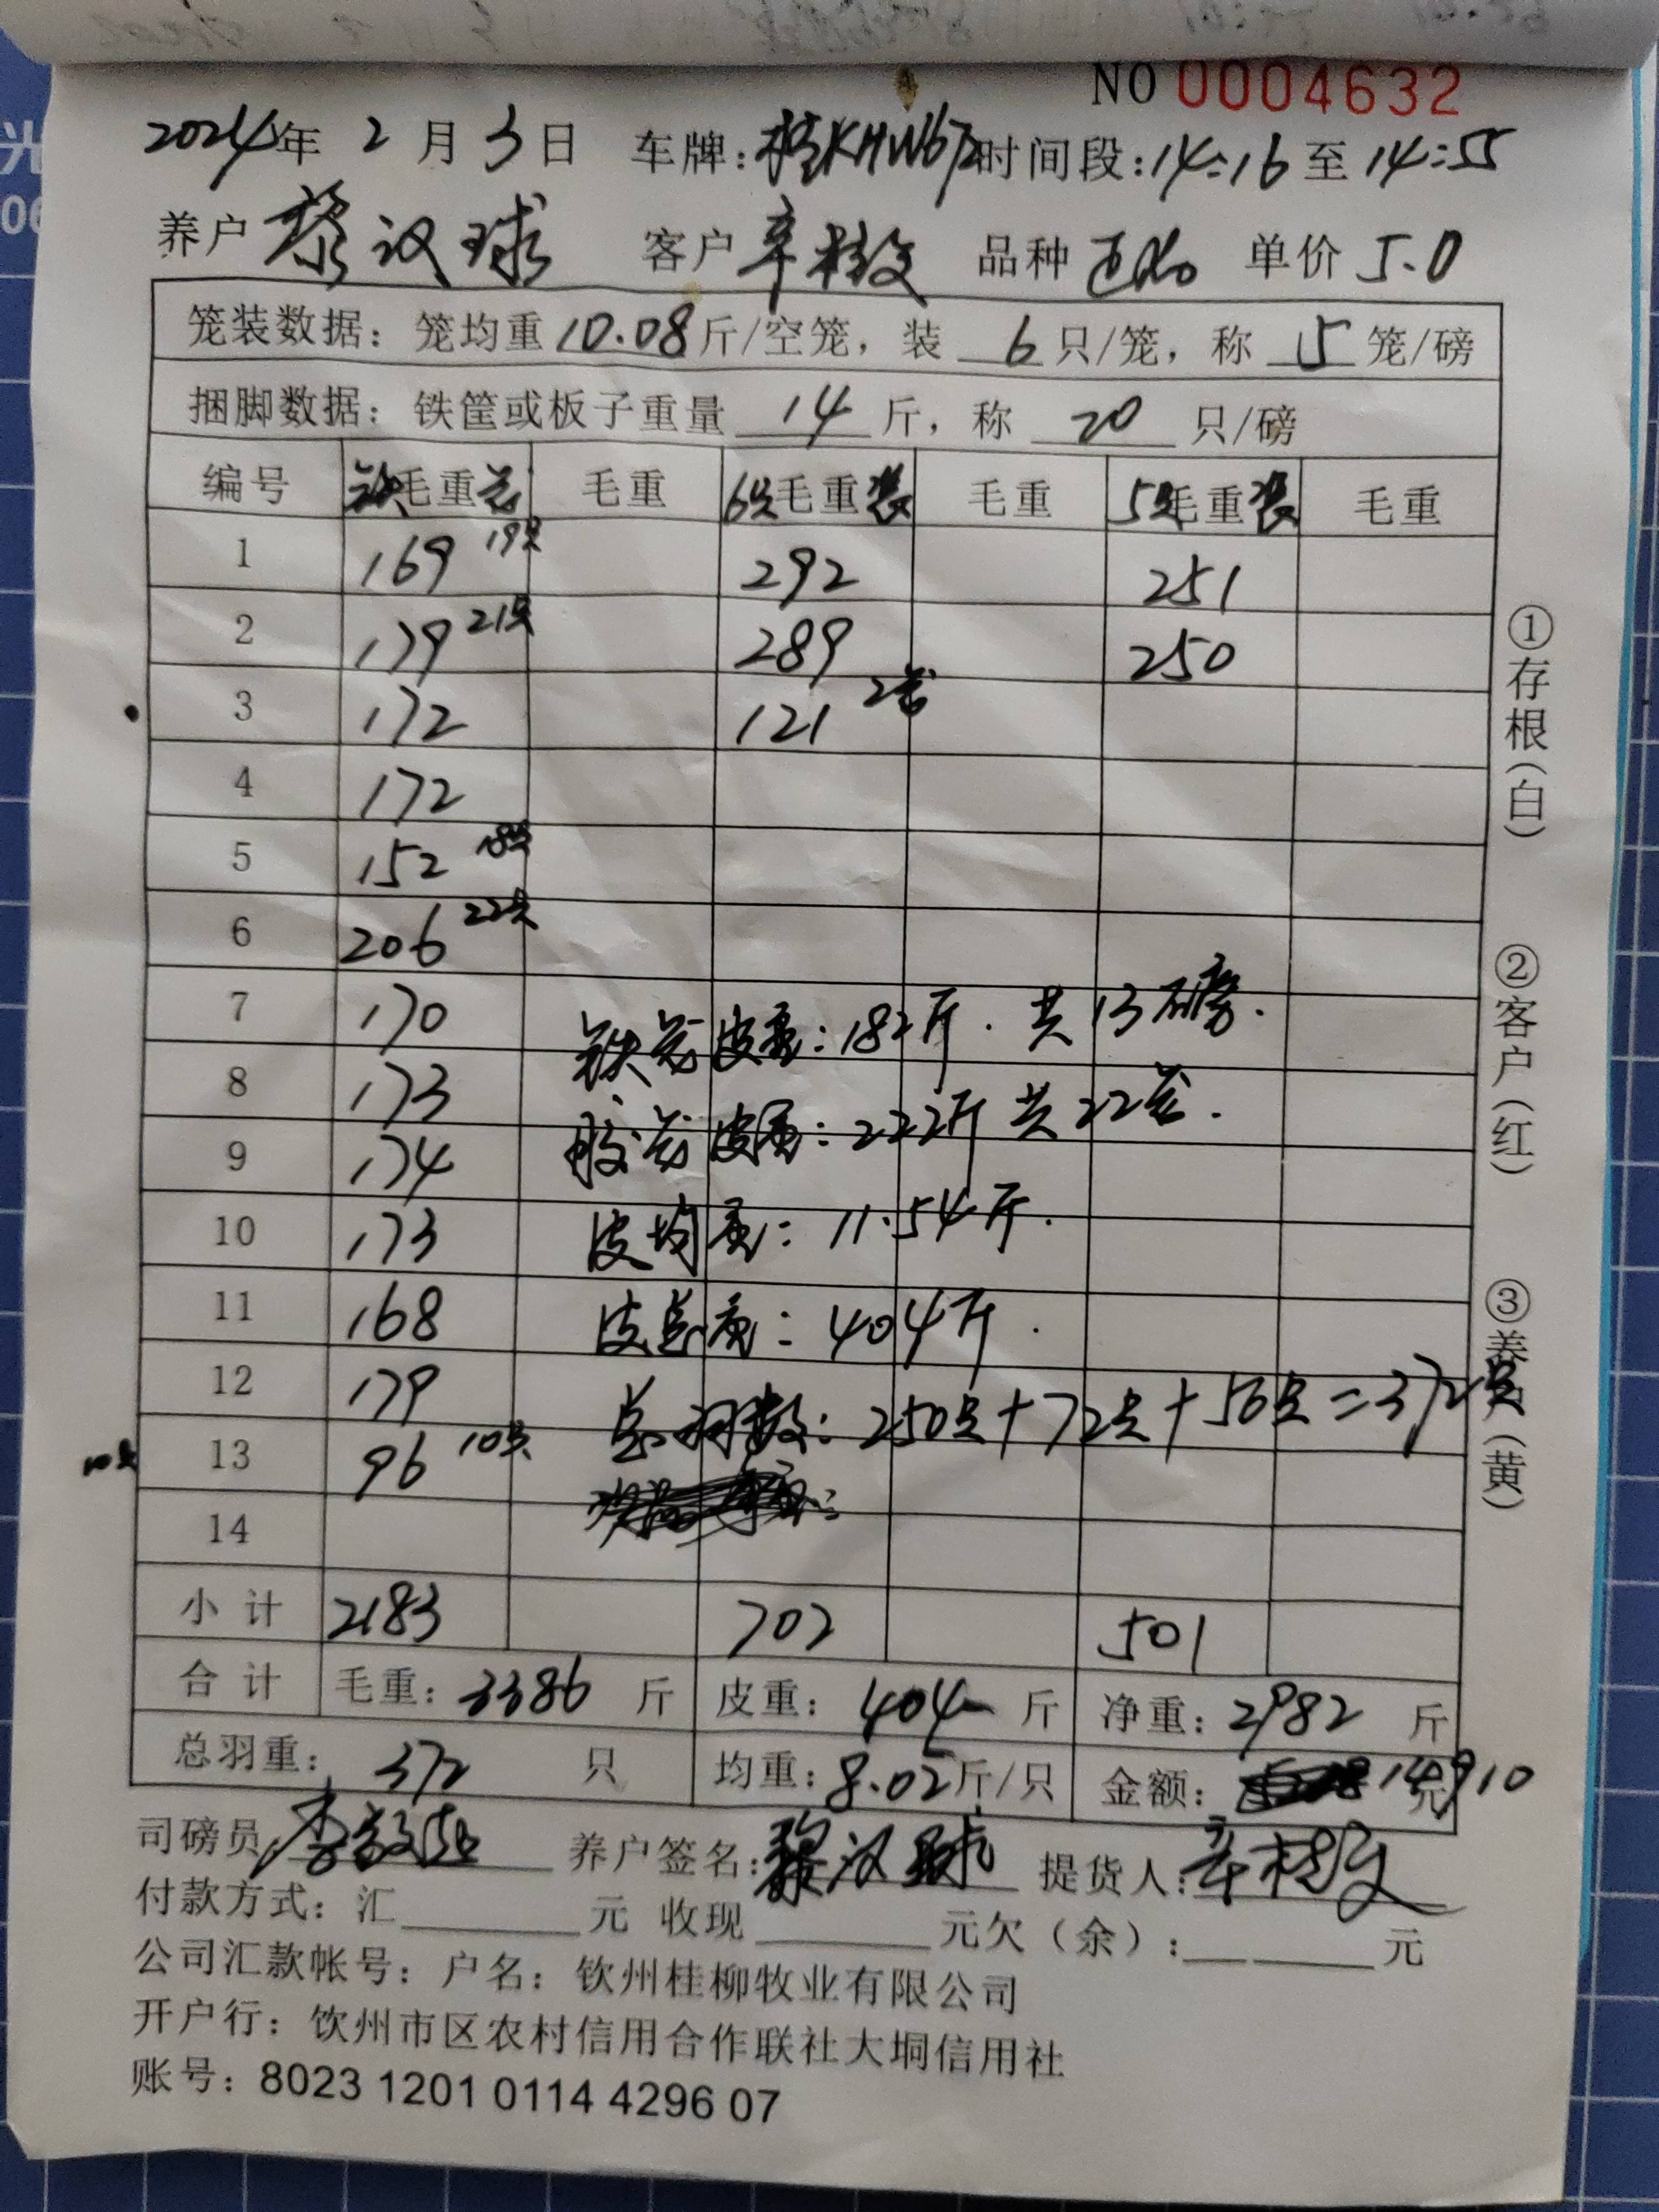 NO 0004632
2024年 2 月 3 日 车牌:桂KHW672 时间段:14:16 至 14:55
养户 黎汉球 客户 辛树文 品种 单价 5.0
笼装数据: 笼均重 10.08 斤/空笼, 装 6 只/笼, 称 5 笼/磅
捆脚数据: 铁筐或板子重量 14 斤, 称 20 只/磅
编号 铁毛重笼 毛重 6只毛重装 毛重 5只毛重装 毛重
1 169 19只 292 251
2 179 21只 289 250
3 172 121 2笼
4 172
5 152 18只
6 206 22只
7 170
铁笼皮重:182斤. 共13磅.
8 173
胶笼皮重:222斤 共22笼.
9 174
10 173 皮均重:11.54斤.
11 168 皮总重:404斤.
12 179
总羽数:250只+72只+50只=372只
10只 13 96 10只
14
小计 2183 702 501
合计 毛重: 3386 斤 皮重: 404 斤 净重: 2982 斤
总羽重: 372 只 均重: 8.02 斤/只 金额: 14910 元
司磅员: 养户签名: 黎汉球 提货人: 辛树文
付款方式: 汇 元 收现 元欠(余): 元
公司汇款帐号: 户名: 钦州桂柳牧业有限公司
开户行: 钦州市区农村信用合作联社大垌信用社
账号: 8023 1201 0114 4296 07
①存根(白)
②客户(红)
③养户(黄)